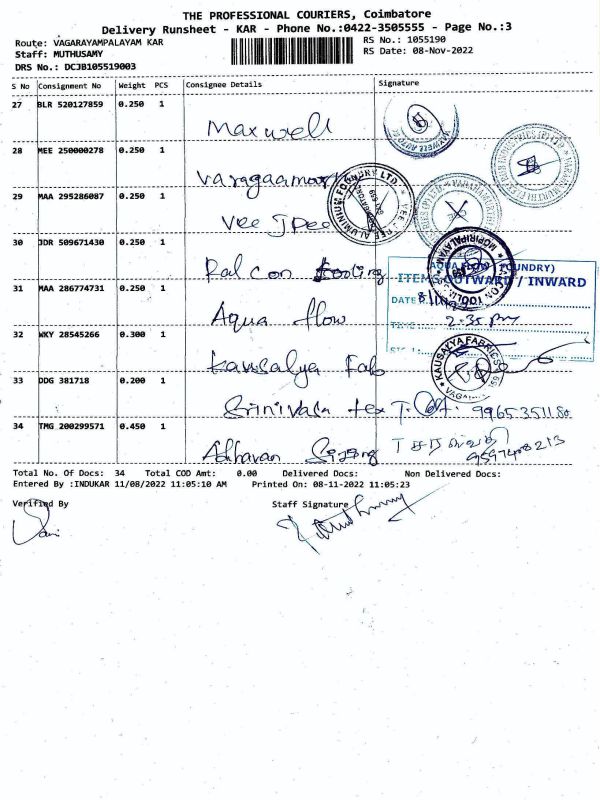 THE PROFESSIONAL COURIERS, Coimbatore
Delivery Runsheet - KAR - Phone No.:0422-3505555 - Page No.:3
Route: VAGARAYAMPALAYAM KAR
RS No.: 1055190
Staff: MUTHUSAMY
RS Date: 08-Nov-2022
DRS No.: DCJB105519003
S No Consignment No Weight PCS Consignee Details Signature
27 BLR 520127859 0.250 1
Maxwell
28 MEE 250000278 0.250 1
29 MAA 295286087 0.250 1
Vee J Pee
30 JDR 509671430 0.250 1
AQUA FLOW (FOUNDRY)
ITEMS OUTWARD / INWARD
31 MAA 286774731 0.250 1
DATE
Aqua flow
2-35 pm
32 WKY 28545266 0.300 1
KAUSALYA FABRICS
Kausalya Fab
33 DDG 381718 0.200 1
Srinivasa tex
34 TMG 200299571 0.450 1
Adhavan Sizing
Total No. Of Docs: 34 Total COD Amt: 0.00 Delivered Docs: Non Delivered Docs:
Entered By :INDUKAR 11/08/2022 11:05:10 AM Printed On: 08-11-2022 11:05:23
Verified By
Staff Signature